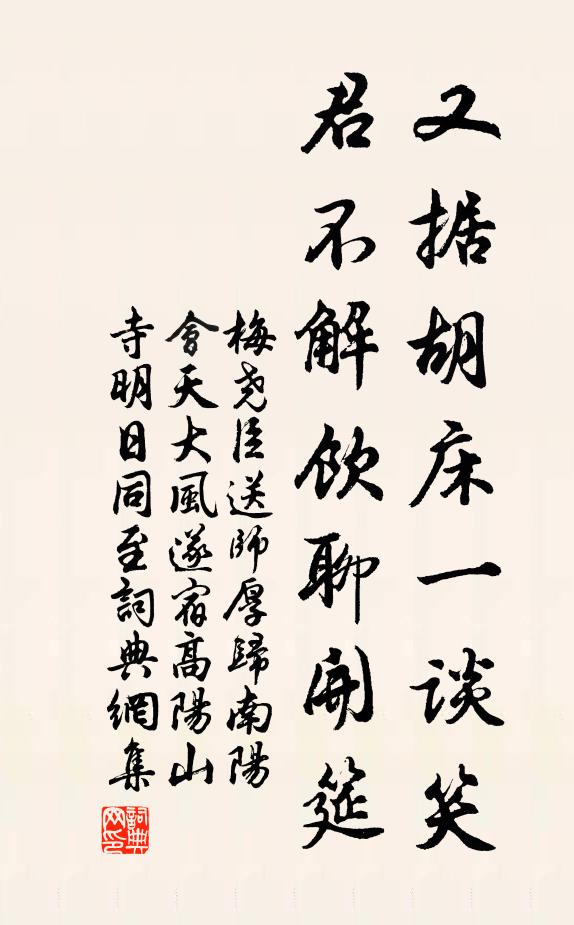 又据胡床一谈笑
君不解饮聊開筵
梅尧臣送師厚歸南陽
會天大風遂宿高陽山
寺明日同至詞典網集
詞典
网印